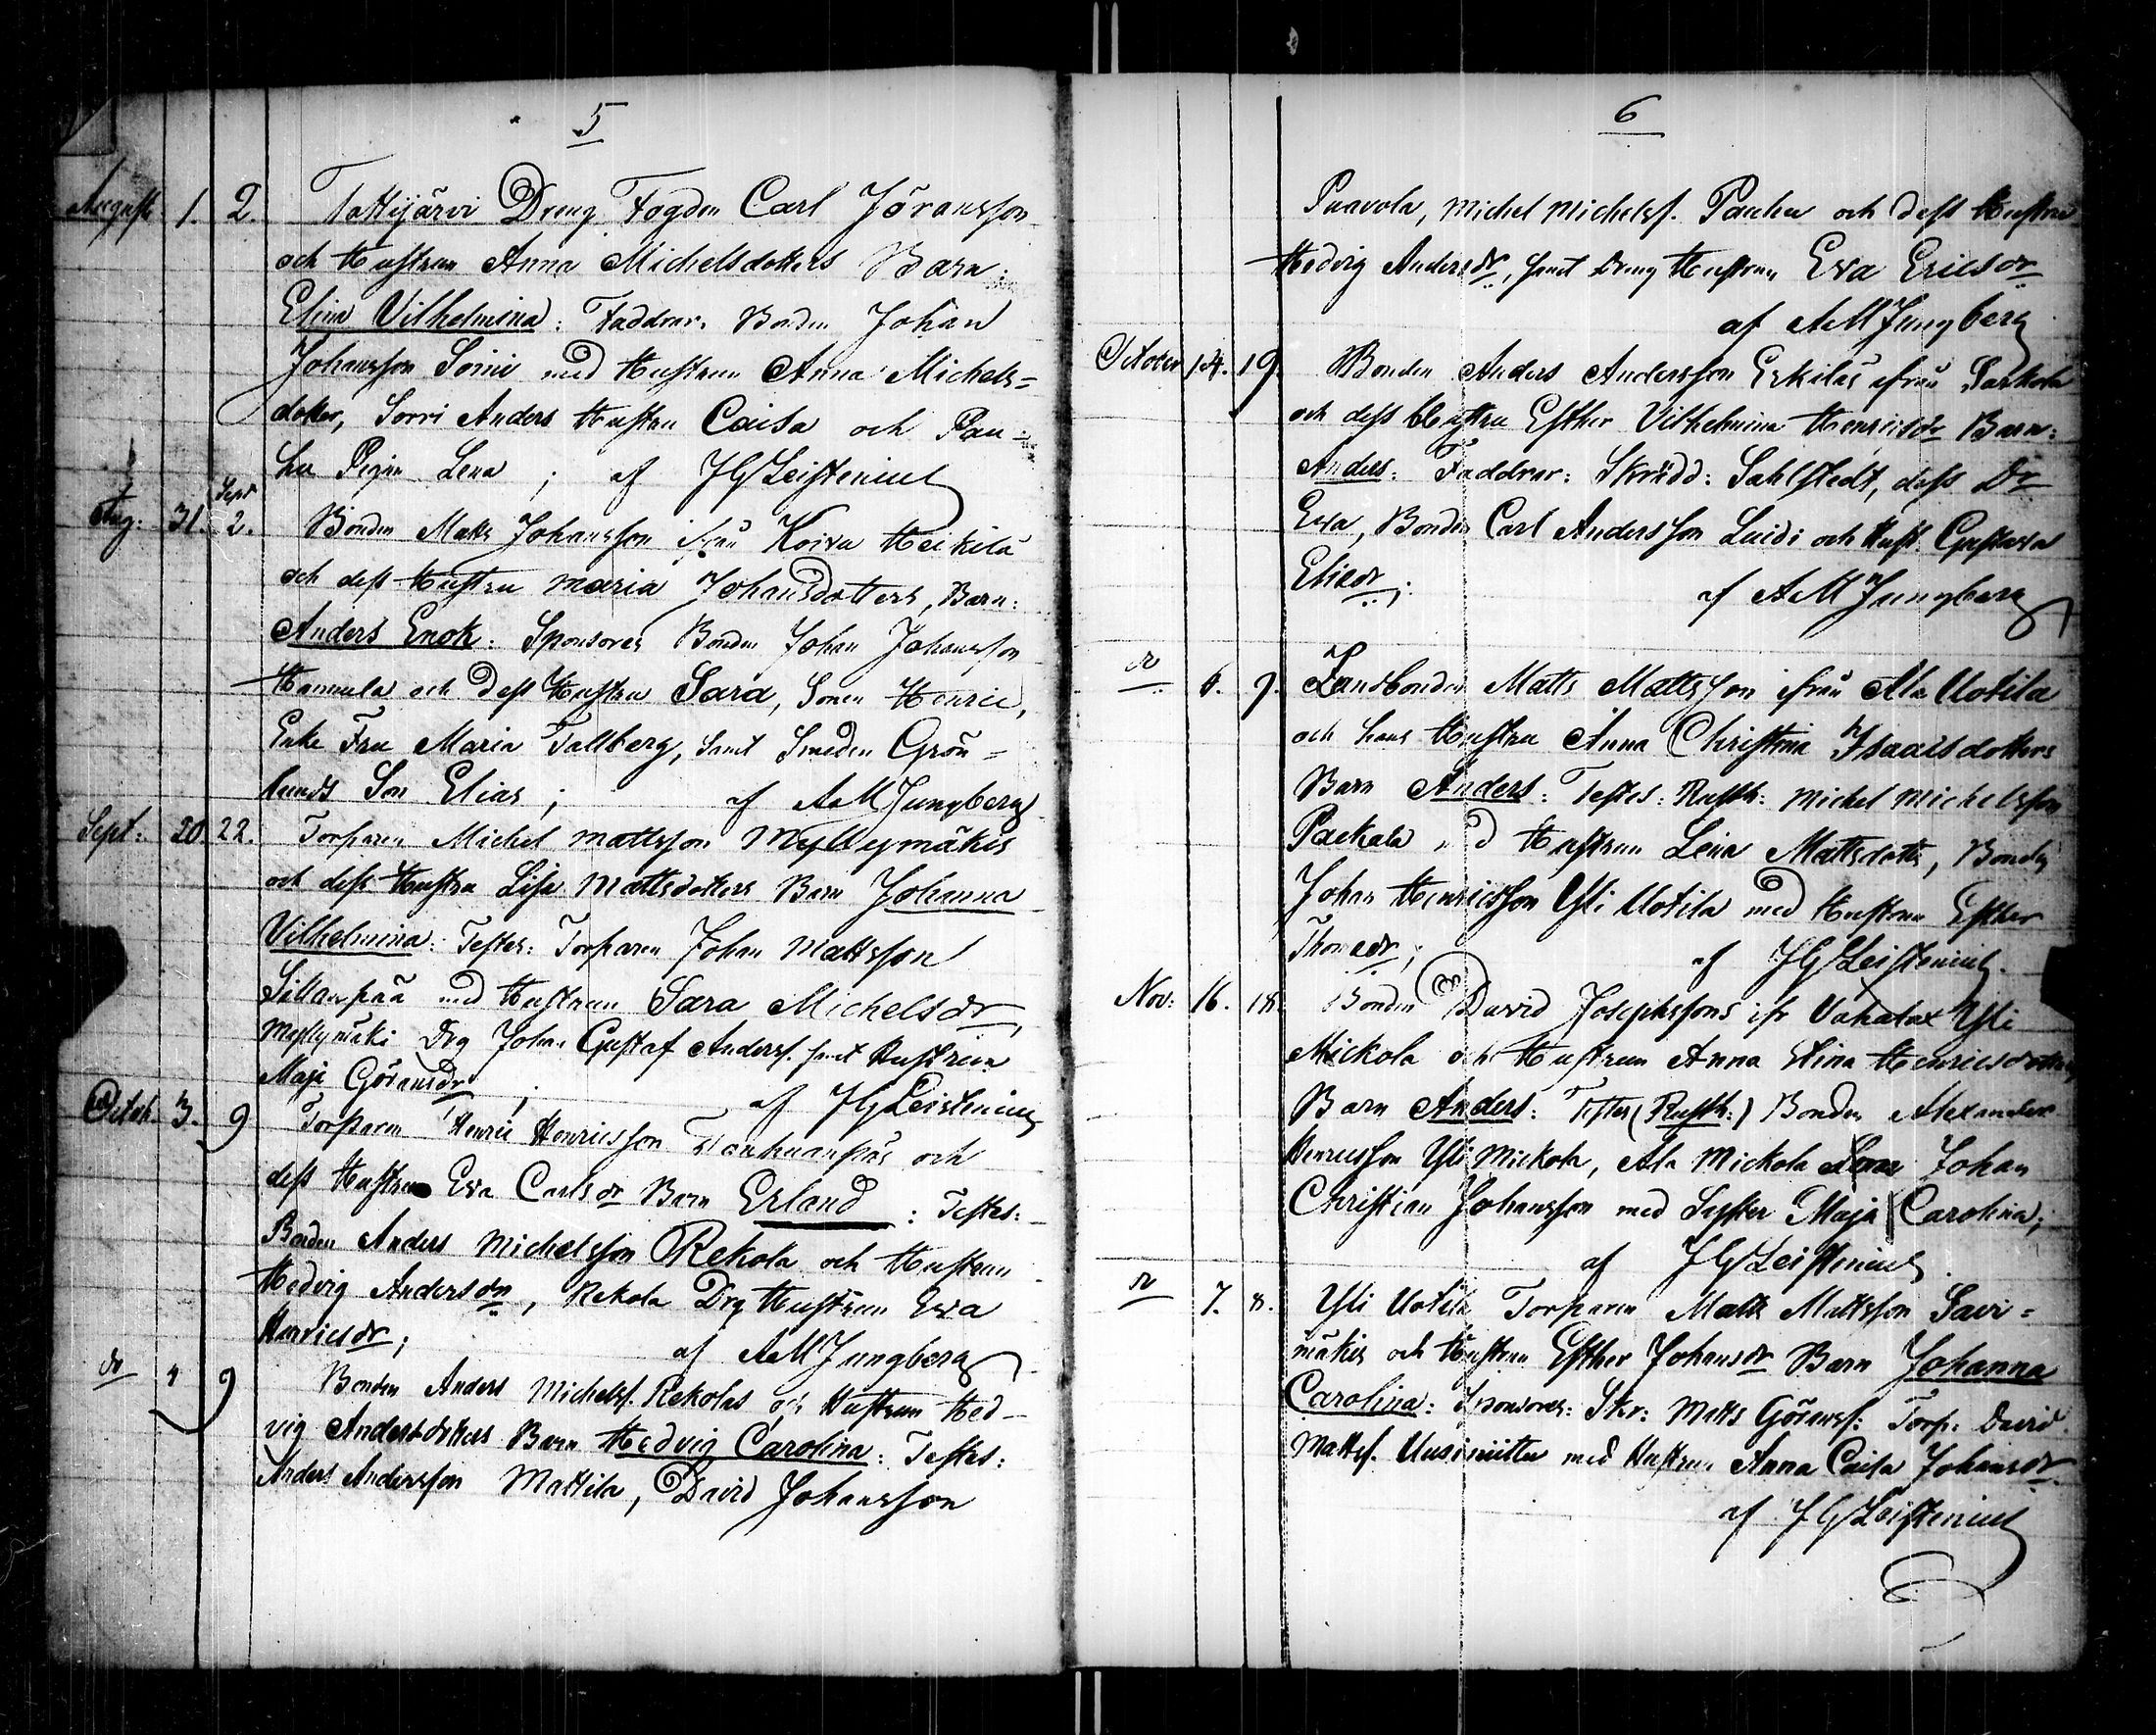 5
Augusti 1. 2. Tottijärvi Dreng Fogden Carl Jöransson
och Hustrun Anna Michelsdotters Barn:
Elina Vilhelmina: Faddrar: Bonden Johan
Johansson Soini med Hustrun Anna Michels=
dotter, Sorri Anders Hustru Caisa och Pau=
hu Pigan Lena; af JG Leistenius
Aug: 31. Sept 2. Bonden Matts Johansson ifrån Koivu Heikilä
och dess Hustru Maria Johansdotters, Barn:
Anders Enok: Sponsores Bonden Johan Johansson
Hannula och dess Hustru Sara, Sonen Henric,
Enke Fru Maria Tallberg, samt Smeden Grön=
lunds Son Elias; af AM Jungberg
Sept: 20. 22. Torparen Michel Mattsson Myllymäkis
och dess Hustru Lisa Mattsdotters Barn Johanna
Vilhelmina: Testes: Torparen Johan Mattsson
Sillanpää med Hustrun Sara Michelsdr,
Myllymäki Drg Johan Gustaf Anderss. samt Hustrun
Maja Göransdr; af JG Leistenius
Octob. 3. 9 Torparen Henric Henricsson och
dess Hustru Eva Carlsdr Barn Erland: Testes:
Bonden Anders Michelsson Rekola och Hustrun
Hedvig Andersdr, Rekola Drg Hustrun Eva
Henricsdr; af AM Jungberg
dr 4 9 Bonden Anders Michelss. Rekolas och Hustrun Hed-
vig Andersdotters Barn Hedvig Carolina: Testes:
Anders Andersson Mattila, David Johansson
6
Paavola, Michel Michelss. Pauhu och dess Hustru
Hedvig Andersdr, samt Dreng Hustrun Eva Ericsdr
af AM Jungberg
October 14. 19. Bonden Anders Andersson Erkiläs ifrån Sarkola
och dess Hustru Esther Vilhelmina Henricsdr Barn:
Anders: Faddrar: Skrädd: Sahlstedt, dess Dr
Eva, Bonden Carl Andersson Luidi och Hust. Gustava
Eliedr; af AM Jungberg
dr 6. 9. Landbonden Matts Mattsson ifrån Ala Uotila
och hans Hustru Anna Christina Isaacsdotters
Barn Anders: Testes: Rusth: Michel Michelsson
Paekala med Hustrun Lena Mattsdotter, Bonden
Johan Henricsson Yli Uotila med Hustrun Esther
Thomedr; af JG Leistenius.
Nov: 16. 18. Bonden David Josephssons ifr Vahalax Yli
Mickola och Hustrun Anna Stina Henricsdotters
Barn Anders: Testes (Rusth:) Bonden Alexander
Henricsson Yli Mickola, Ala Mickola Johan
Christian Johansson med Syster Maja Carolina;
af JG Leistenius.
dr 7. 8. Yli Uotila Torparen Matts Mattsson Savi=
mäkis och Hustrun Esther Johansdr Barn Johanna
Carolina: Sponsores: Skr: Matts Göranss: Torp: David
Mattss. Uusiniittu med Hustrun Anna Caisa Johansdr.
af JG Leistenius